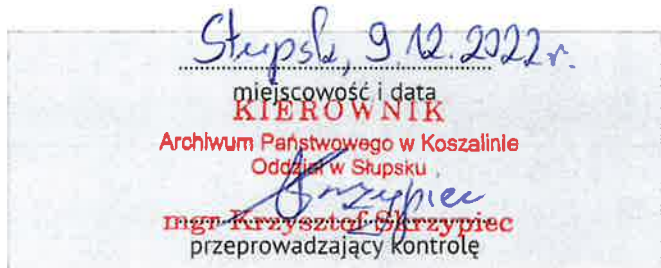 Słupsk, 9.12.2022r.
miejscowość i data
KIEROWNIK
Archiwum Państwowego w Koszalinie
Oddział w Słupsku
Skrzypiec
mgr Krzysztof Skrzypiec
przeprowadzający kontrolę